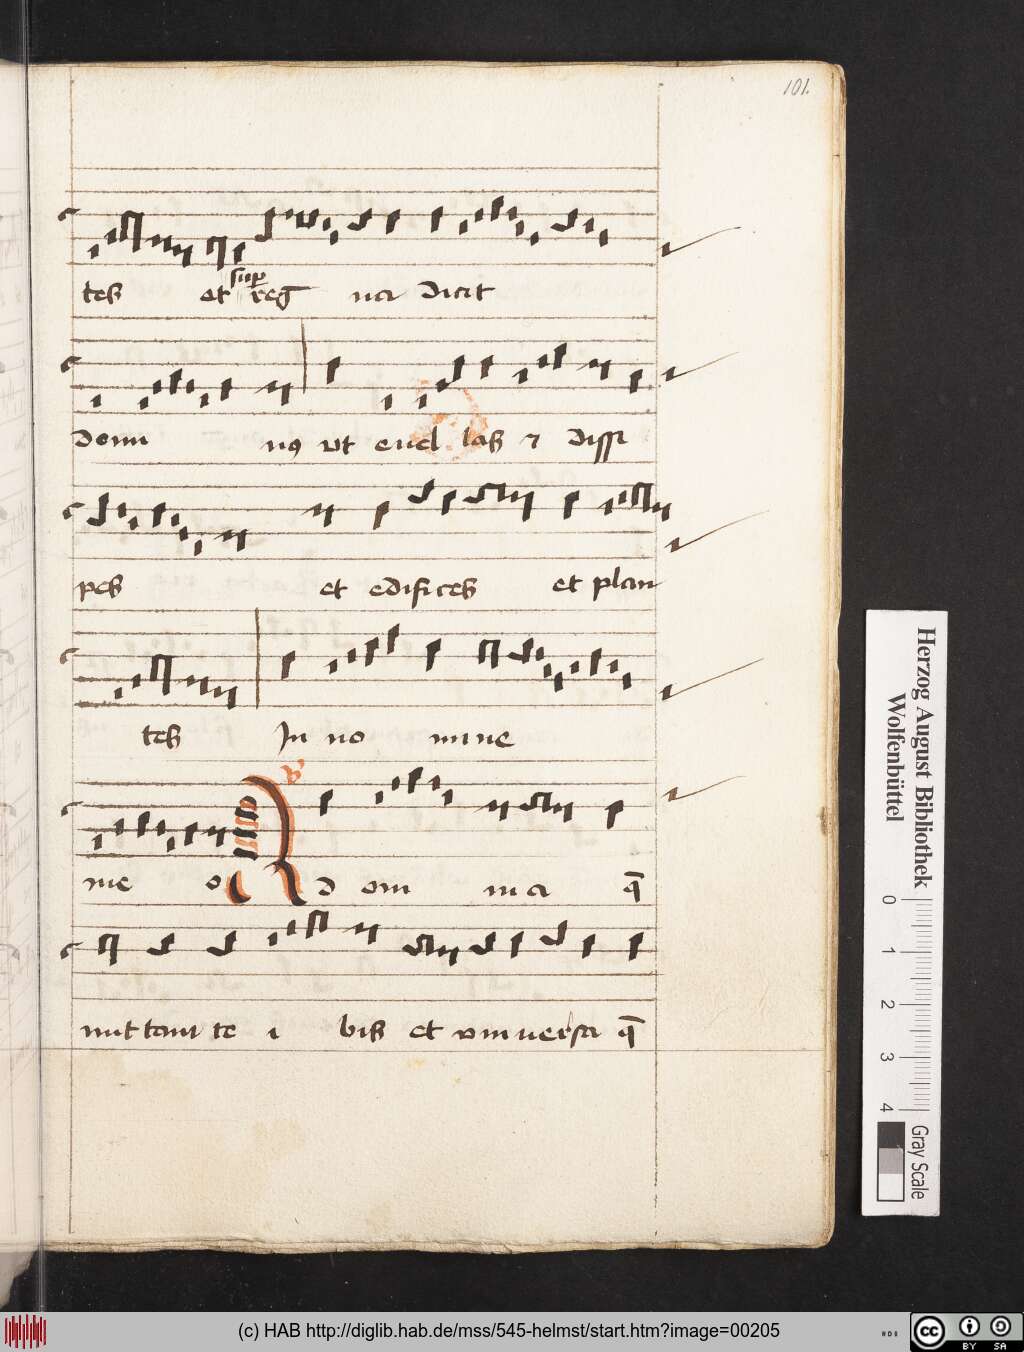 101.
tes et sup reg na dicit
domi nus vt euel las et dissi
pes et edifices et plan
tes In no mine
me o R Ad om ni a q̄
mittam te i bis et vniuersa q̄
Herzog August Bibliothek
Wolfenbüttel
0 1 2 3 4
Gray Scale
(c) HAB http://diglib.hab.de/mss/545-helmst/start.htm?image=00205
HAB
cc BY SA